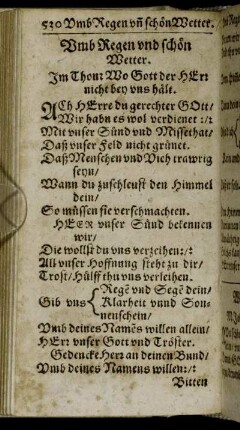 520 Vmb Regen vn̄ schön Wetter.
Vmb Regen vnd schön
Wetter.
Im Thon: Wo Gott der HErr
nicht bey vns hält.
ACh HErre du gerechter GOtt/
Wir habn es wol verdienet :/:
Mit vnser Sünd vnd Missethat/
Daß vnser Feld nicht grünet.
Daß Menschen vnd Vieh trawrig
seyn/
Wann du zuschleust den Himmel
dein/
So müssen sie verschmachten.
HERR vnser Sünd bekennen
wir/
Die wollst du vns verzeihen:/:
All vnser Hoffnung steht zu dir/
Trost/ Hülff thu vns verleihen.
Regē vnd Segē dein/
Gib vns Klarheit vnnd Son-
nenschein/
Vmb deines Namēs willen allein/
HErr vnser Gott vnd Tröster.
Gedencke Herr an deinen Bund/
Vmb deines Namens willen:/:
Bitten